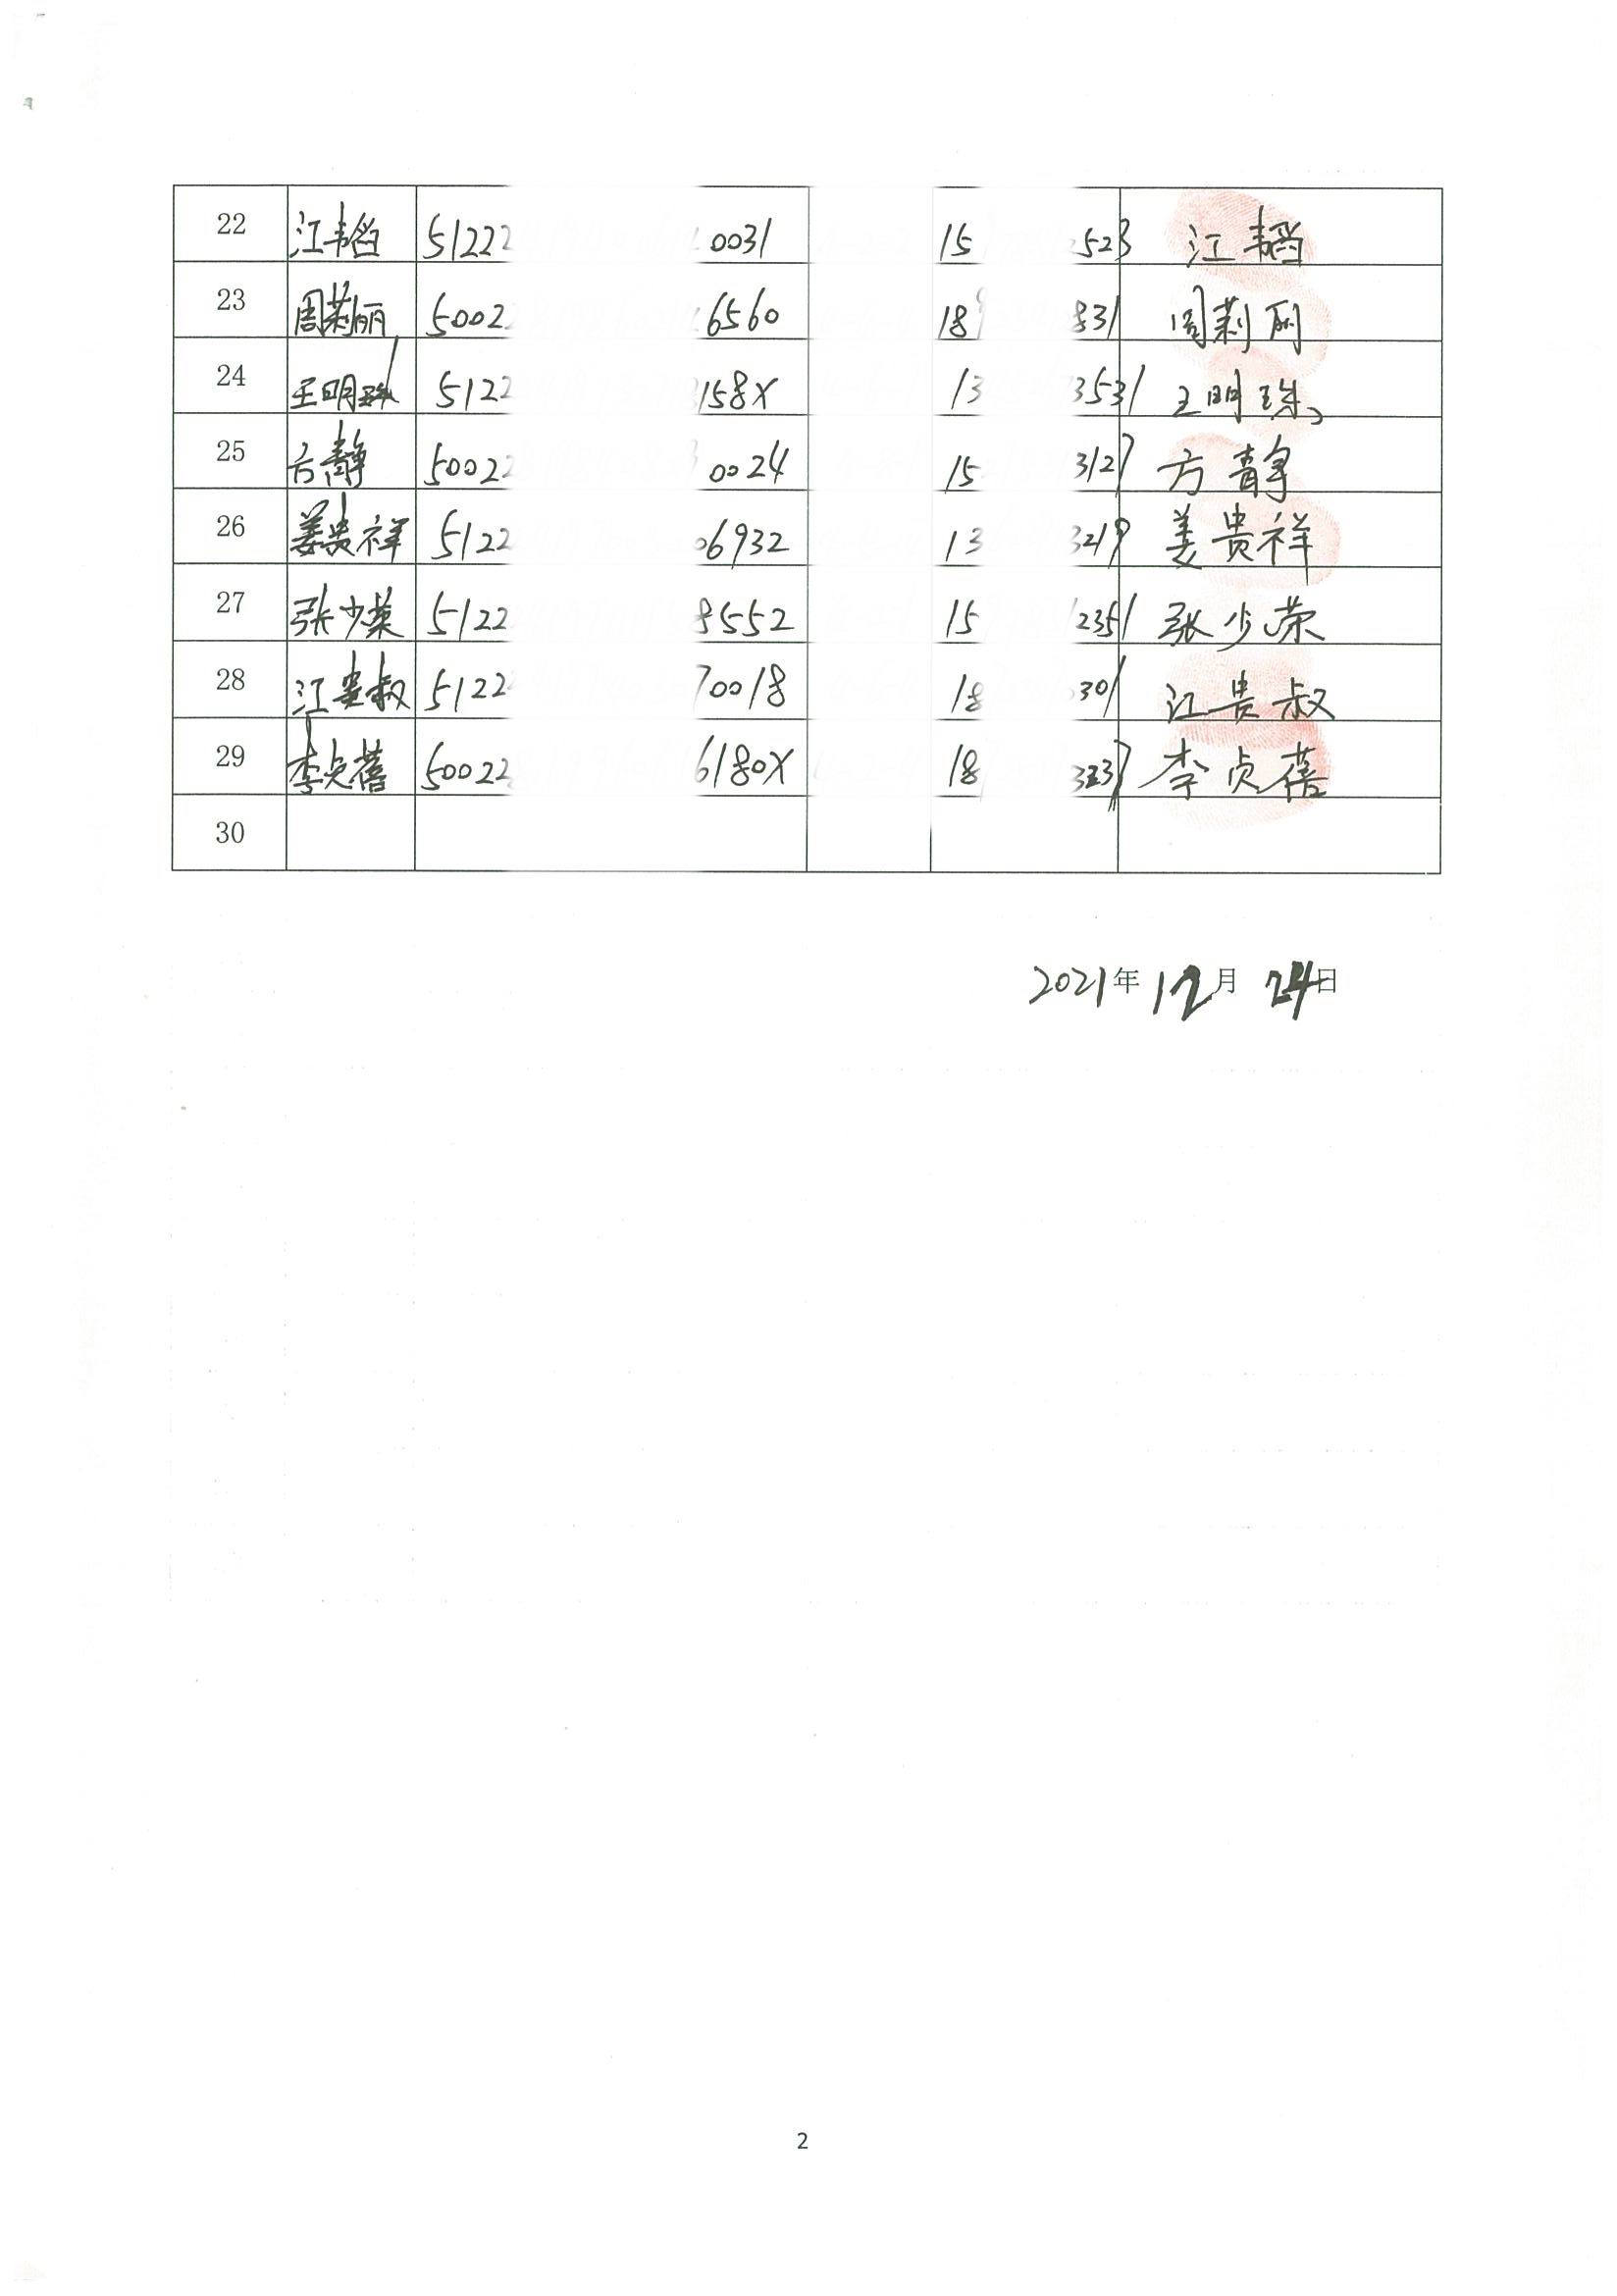 22 江韬 51222 0031 15 523 江韬
23 周莉丽 5002 6560 18 831 周莉丽
24 王明珠 5122 158X 13 3531 王明珠
25 方静 50022 0024 15 3127 方静
26 姜贵祥 5122 06932 13 3219 姜贵祥
27 张少荣 5122 8552 15 2351 张少荣
28 江贵叔 5122 70018 18 301 江贵叔
29 李贞蓓 50022 6180X 18 李贞蓓
30
2021年12月24日
2